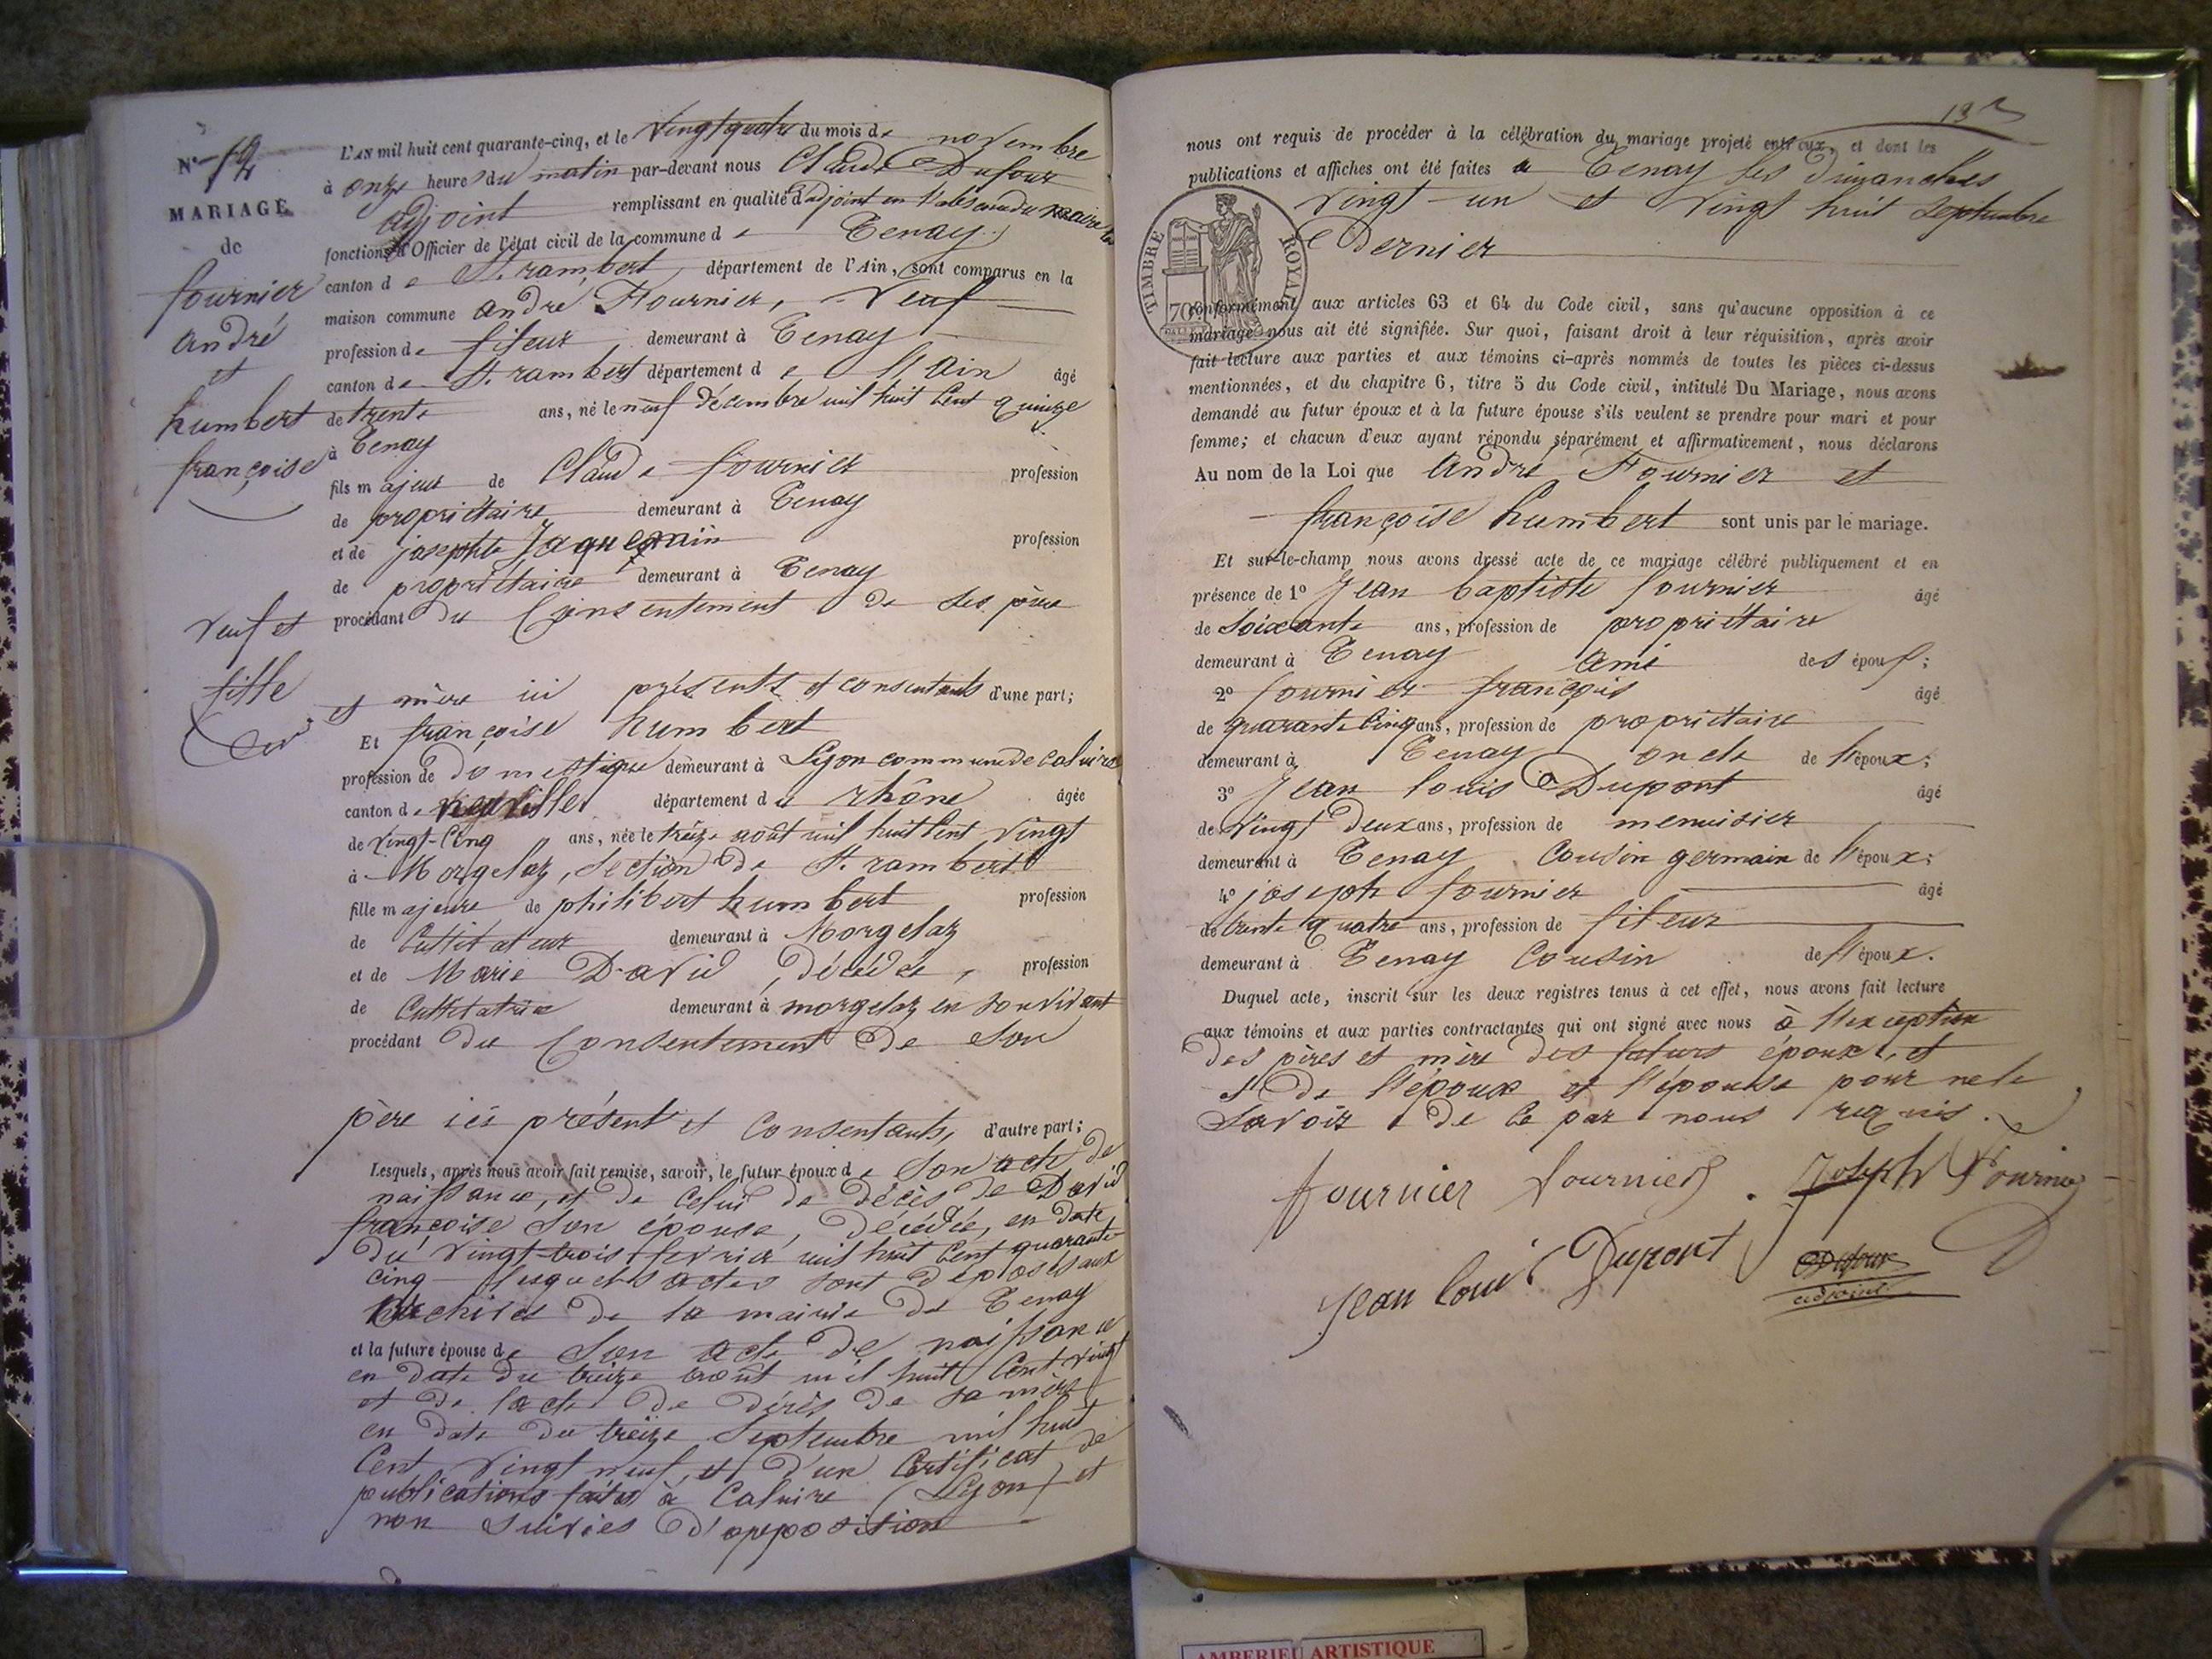 N.° 14
MARIAGE
de
fournier
andré
et
humbert
françoise
veuf et
fille
L'AN mil huit cent quarante-cinq, et le vingt quatre du mois de novembre
à onze heures du matin par-devant nous Claude Dufour
adjoint remplissant en qualité d'adjoint en l'absence du maire les
fonctions d'Officier de l'état civil de la commune de Tenay
canton de St. rambert, département de l'Ain, sont comparus en la
maison commune andré Fournier, veuf
profession de fileur demeurant à Tenay
canton de St. rambert département de l'Ain âgé
de trente ans, né le neuf décembre mil huit cent quinze
à Tenay
fils majeur de Claude fournier profession
de propriétaire demeurant à Tenay
et de josephte Jaquemin profession
de propriétaire demeurant à Tenay
procédant du Consentement de ses père
et mère ici présents et consentants d'une part;
Et françoise humbert
profession de domestique demeurant à Lyon commune de caluire
canton de neuville département du rhône âgée
de vingt-cinq ans, née le treize août mil huit cent vingt
à Morgelaz, section de St. rambert
fille majeure de philibert humbert profession
de Cultivateur demeurant à Morgelaz
et de Marie David, décédée, profession
de Cultivatrice demeurant à morgelaz en son vivant
procédant du Consentement de son
père ici présent et consentants, d'autre part;
Lesquels, après nous avoir fait remise, savoir, le futur époux de son acte de
naissance, et de celui de décès de David
françoise son épouse, décédée, en date
du vingt-trois fevrier mil huit cent quarante
cinq lesquels actes sont déposés aux
archives de la mairie de Tenay
et la future épouse de son acte de naissance
en date du treize août mil huit cent vingt
et de l'acte de décès de sa mère
en date du treize septembre mil huit
cent vingt neuf, et d'un certificat de
publications faites à Caluire (Lyon) et
non suivies d'opposition
13
nous ont requis de procéder à la célébration du mariage projeté entr'eux, et dont les
publications et affiches ont été faites à Tenay les dimanches
vingt-un et vingt huit septembre
dernier
TIMBRE ROYAL
70
conformément aux articles 63 et 64 du Code civil, sans qu'aucune opposition à ce
mariage nous ait été signifiée. Sur quoi, faisant droit à leur réquisition, après avoir
fait lecture aux parties et aux témoins ci-après nommés de toutes les pièces ci-dessus
mentionnées, et du chapitre 6, titre 5 du Code civil, intitulé Du Mariage, nous avons
demandé au futur époux et à la future épouse s'ils veulent se prendre pour mari et pour
femme; et chacun d'eux ayant répondu séparément et affirmativement, nous déclarons
Au nom de la Loi que andré Fournier et
françoise humbert sont unis par le mariage.
Et sur-le-champ nous avons dressé acte de ce mariage célébré publiquement et en
présence de 1° Jean baptiste fournier âgé
de soixante ans, profession de propriétaire
demeurant à Tenay ami des épouх;
2° fournier françois âgé
de quarante cinq ans, profession de propriétaire
demeurant à Tenay oncle de l'époux;
3° Jean louis Dupont âgé
de vingt deux ans, profession de menuisier
demeurant à Tenay cousin germain de l'époux;
4° joseph fournier âgé
de trente quatre ans, profession de fileur
demeurant à Tenay cousin de l'époux.
Duquel acte, inscrit sur les deux registres tenus à cet effet, nous avons fait lecture
aux témoins et aux parties contractantes qui ont signé avec nous à l'exception
des pères et mère des futurs époux, et
de l'époux et l'épouse pour ne le
savoir de ce par nous requis.
fournier fournier Joseph Fournier
Jean loui Dupont Dufour
adjoint
AMBERIEU ARTISTIQUE